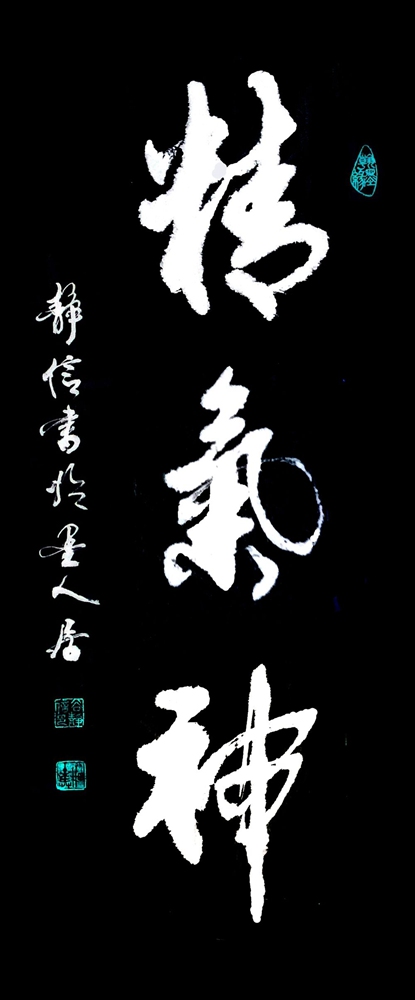 精氣神
静信書於墨人居